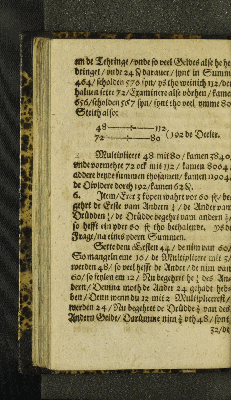 em de Tehringe / vnde so veel Geldes alse he he
bringet / vnde 24 ß darauer / synt in Summ
464 / scholden 576 syn / ys tho weinich 112 / der
haluen sette 72 / Examinere alse vörhen / kamen
656 / scholden 567 syn / synt tho veel vmme 80
Steith also:
48 112
72 80 (192 de Deeler.
Multiplicere 48 mit 80 / kamen 3840
vnde vormehre 72 ock mit 112 / kamen 8064
addere beyde summen thosamen / kamen 11904
de Diuidere dorch 192 / kamen 62 ß.
6. Item / Erer 3 kopen wahre vor 60 fl / be
gehret de Erste vam Andern / de Ander vam
Drüdden / de Drüdde begehret vam andern
so hefft ein yder 60 fl tho bethalende. Ys de
Frage / na eines ydern Summen.
Sette dem Ersten 44 / de nim van 60 /
So mangeln eme 16 / de Multiplicere mit 3 /
werden 48 / so veel hefft de Ander / de nim van
60 / so feylen em 12 / Nu begehret he des An
dern / Demna moth de Ander 24 gehadt heb
ben / Denn wenn du 12 mit 2 Multiplicerest /
werden 24 / Nu begehret de Drüdde van des
Andern Geldt / Darümme nim vth 48 / synt
32 / de